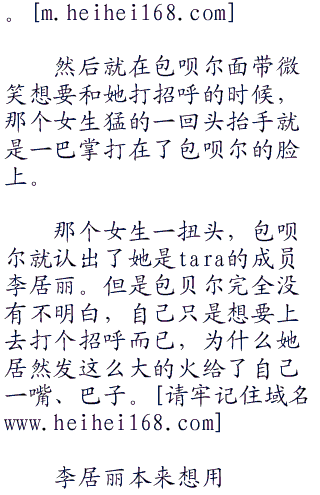 。[m.heihei168.com]
然后就在包呗尔面带微
笑想要和她打招呼的时候，
那个女生猛的一回头抬手就
是一巴掌打在了包呗尔的脸
上。
那个女生一扭头，包呗
尔就认出了她是tara的成员
李居丽。但是包贝尔完全没
有不明白，自己只是想要上
去打个招呼而已，为什么她
居然发这么大的火给了自己
一嘴、巴子。[请牢记住域名
www.heihei168.com]
李居丽本来想用